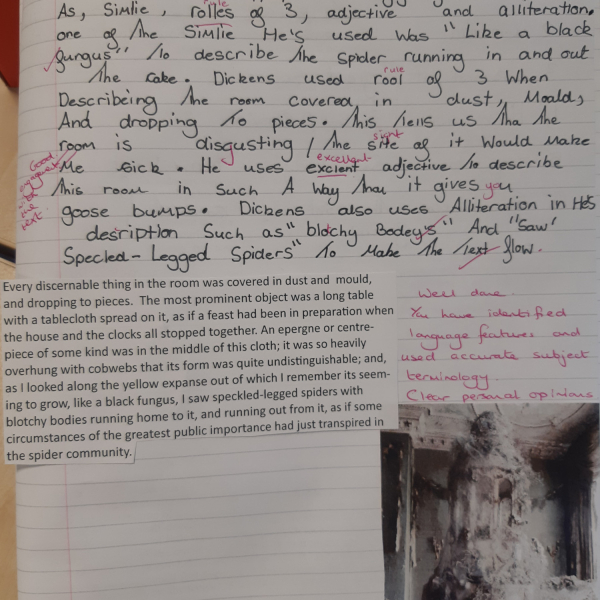 As, Simlie, rolles of 3, adjective and alliteration.
rule
one of the Simlie He's used was "Like a black
gungus" To describe the spider running in and out
the cake. Dickens used rool of 3 When
rule
Describeing the room covered in dust, Moald,
And dropping To pieces. this tells us tha the
room is disgusting / the site of it Would Make
sight
Me sick. He uses exclent adjective to describe
excellent
this room in Such A Way that it gives you
goose bumps. Dickens also uses Alliteration in He's
desription Such as "blochy Bodey's" And "Saw
Specled-Legged Spiders" To Make the text flow.
Good
engagement
with
the
text
Every discernable thing in the room was covered in dust and mould,
and dropping to pieces. The most prominent object was a long table
with a tablecloth spread on it, as if a feast had been in preparation when
the house and the clocks all stopped together. An epergne or centre-
piece of some kind was in the middle of this cloth; it was so heavily
overhung with cobwebs that its form was quite undistinguishable; and,
as I looked along the yellow expanse out of which I remember its seem-
ing to grow, like a black fungus, I saw speckled-legged spiders with
blotchy bodies running home to it, and running out from it, as if some
circumstances of the greatest public importance had just transpired in
the spider community.
Well done.
You have identified
language features and
used accurate subject
terminology.
Clear personal opinions